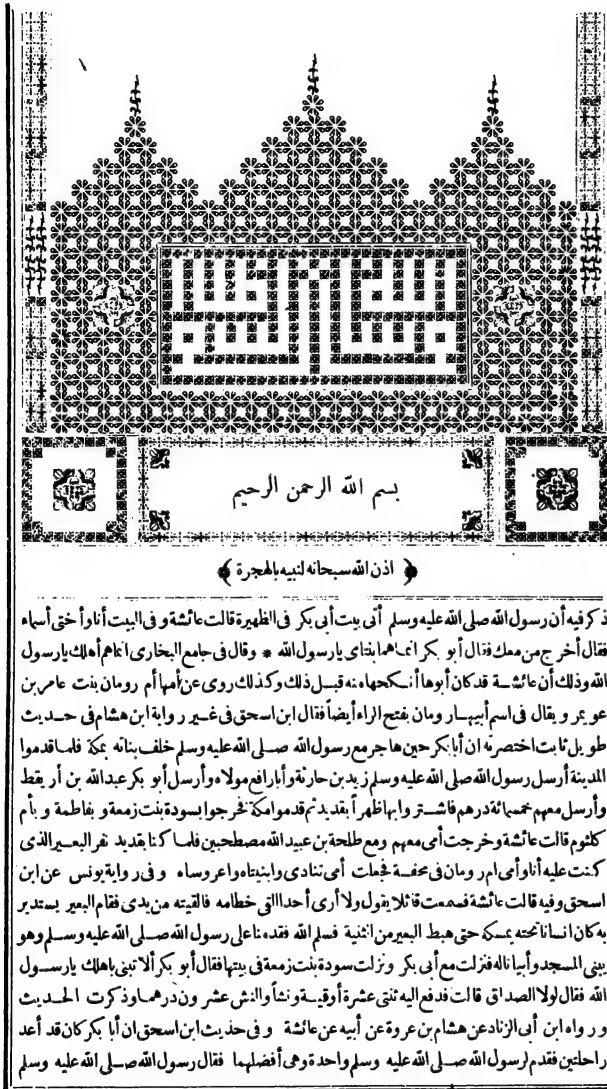 بسم الله الرحمن الرحيم
﴿ اذن الله سبحانه لنبيه بالهجرة ﴾
ذكر فيه أن رسول الله صلى الله عليه وسلم أتى بيت أبى بكر فى الظهيرة قالت عائشة وفى البيت أنا وأختى أسماء
فقال أخرج من معك فقال أبو بكر انماهما بنتاى يا رسول الله * وقال فى جامع البخارى انماهم أهلك يا رسول
الله وذلك أن عائشة قد كان أبوها أنكحها منه قبل ذلك وكذلك روى عن أمها أم رومان بنت عامر بن
عويمر ويقال فى اسم أبيها رومان بفتح الراء أيضاً فقال ابن اسحق فى غير رواية ابن هشام فى حديث
طويل ثابت اختصرته ان أبا بكر حين هاجر مع رسول الله صلى الله عليه وسلم خلف بناته بمكة فلما قدموا
المدينة أرسل رسول الله صلى الله عليه وسلم زيد بن حارثة وأبا رافع مولاه وأرسل أبو بكر عبد الله بن أريقط
وأرسل معهم خمسمائة درهم فاشتروا بها ظهراً بقديد ثم قدموا مكة فخرجوا بسودة بنت زمعة وبفاطمة وبأم
كلثوم قالت عائشة وخرجت أمى معهم ومع طلحة بن عبيد الله مصطحبين فلما كنا بقديد نفر البعير الذى
كنت عليه أنا وأمى ام رومان فى محفة فجعلت أمى تنادى وابنيتاه واعروساه وفى رواية يونس عن ابن
اسحق وفيه قالت عائشة فسمعت قائلا يقول ولا أرى أحدا القى خطامه فالقيته من يدى فقام البعير يستدير
به كان انسانا تحته يمسكه حتى هبط البعير من الثنية فسلم الله فقدمنا على رسول الله صلى الله عليه وسلم وهو
يبنى المسجد وأبياتاله فنزلت مع أبى بكر ونزلت سودة بنت زمعة فى بيتها فقال أبو بكر ألا تبنى باهلك يا رسول
الله فقال لولا الصداق قالت فدفع اليه ثنتى عشرة أوقية ونشاً والنش عشرون درهما وذكرت الحديث
ورواه ابن أبى الزناد عن هشام بن عروة عن أبيه عن عائشة وفى حديث ابن اسحق ان أبا بكر كان قد أعد
راحلتين فقدم لرسول الله صلى الله عليه وسلم واحدة وهى أفضلهما فقال رسول الله صلى الله عليه وسلم